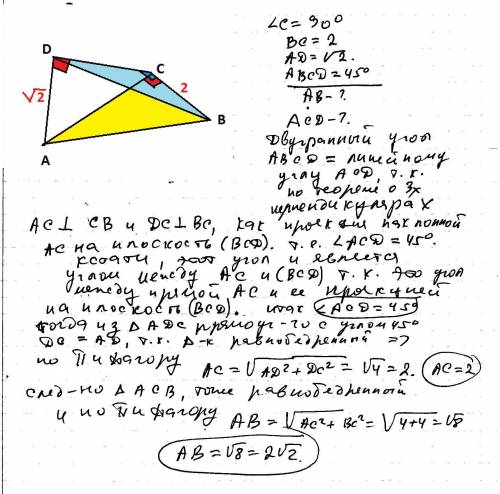 D
C
√2
2
B
A
∠C = 90°
BC = 2
AD = √2.
ABCD = 45°
AB - ?
ACD - ?.
Двугранный угол
ABCD = линейному
углу ACD, т.к.
по теореме о 3х
перпендикулярах
AC ⊥ CB и DC ⊥ BC, как проекция наклонной
AC на плоскость (BCD). т.е. ∠ACD = 45°.
кстати, этот угол и является
углом между AC и (BCD) т.к. это угол
между прямой AC и ее проекцией
на плоскость (BCD). итак ∠ACD = 45°
тогда из △ADC прямоуг-го с углом 45°
DC = AD, т.к. △-к равнобедренный =>
по Пифагору AC = √AD² + DC² = √4 = 2. AC = 2
след-но △ACB, тоже равнобедренный
и по Пифагору AB = √AC² + BC² = √4+4 = √8
AB = √8 = 2√2.